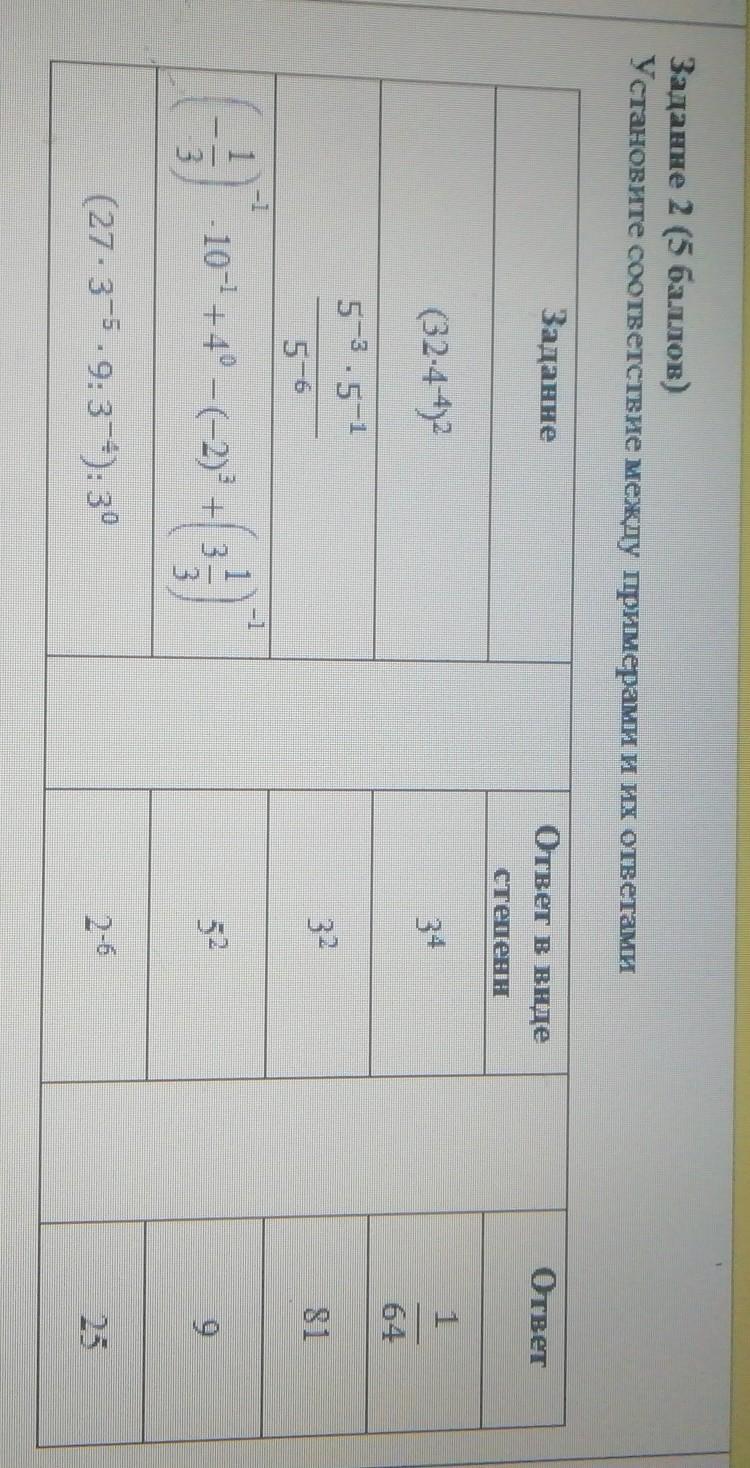 Задание 2 (5 баллов)
Установите соответствие между примерами и их ответами
Задание Ответ в виде степени Ответ
(32·4⁻⁴)² 3⁴ 1/64
(5⁻³ · 5⁻¹)/5⁻⁶ 3² 81
(−1/3)⁻¹ · 10⁻¹ + 4⁰ − (−2)³ + (3 1/3)⁻¹ 5² 9
(27 · 3⁻⁵ · 9: 3⁻⁴): 3⁰ 2⁻⁶ 25